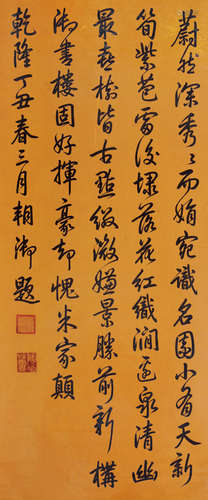 蔚然深秀〻而娟宛識名園小有天新
筍紫苞雷後落花紅織澗邊泉清幽
最喜樹皆古點綴嫌景勝前新構
御書樓固好揮豪却愧米家顛
乾隆丁丑春三月御題